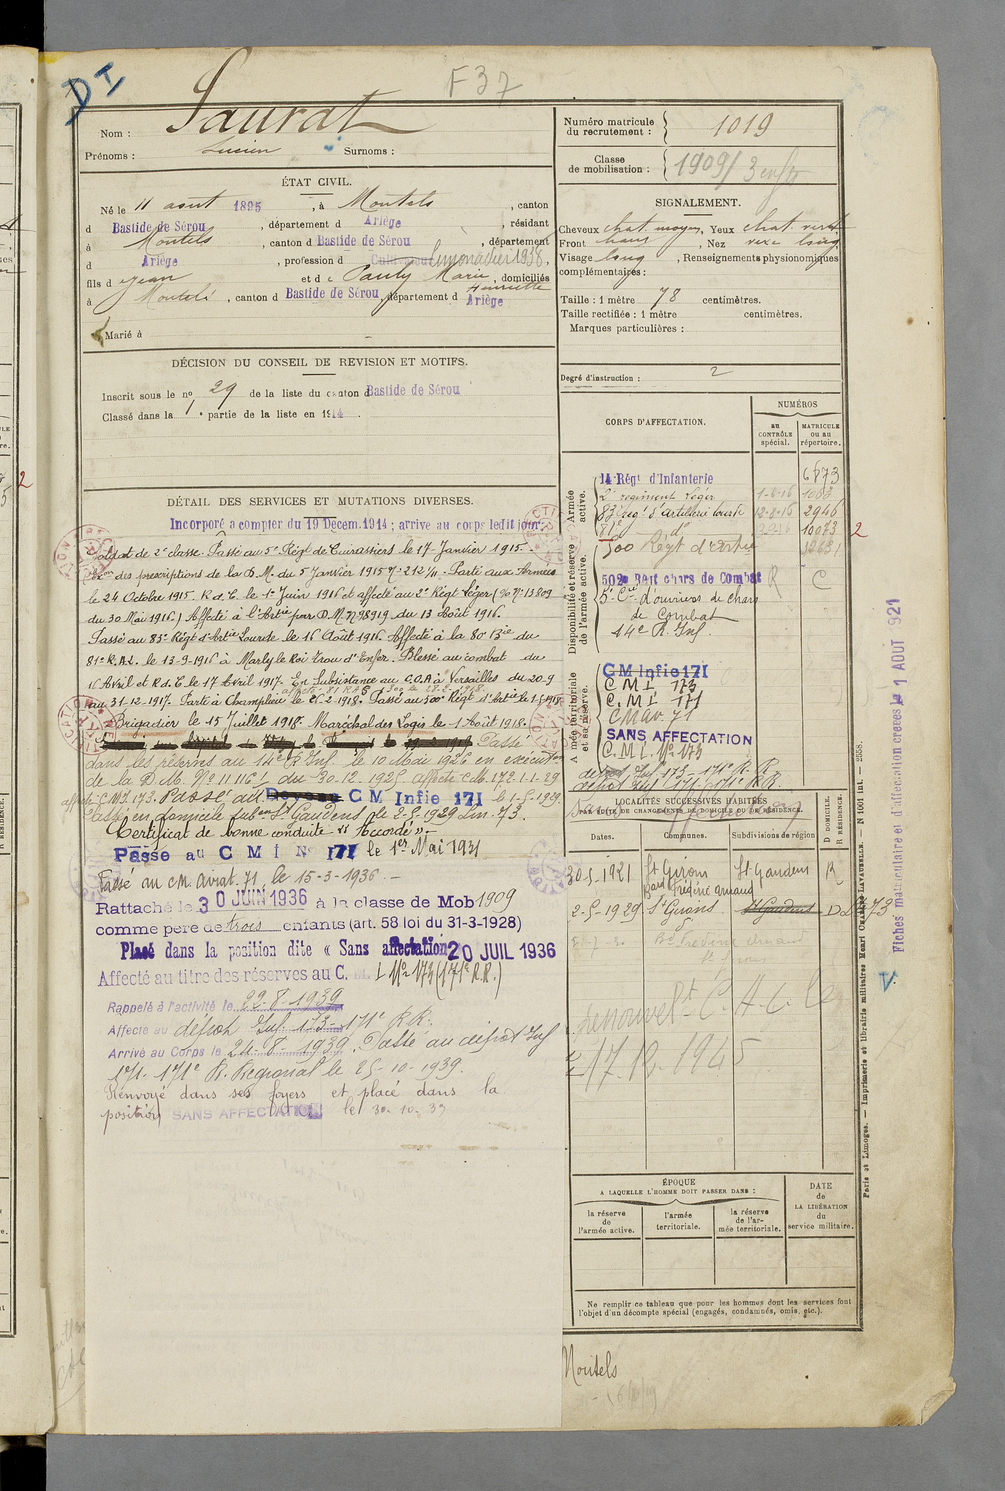 DI
F 37
Nom : Saurat
Prénoms : Lucien Surnoms :
Numéro matricule du recrutement : 1019
Classe de mobilisation : 1909/ 3 enfts
ÉTAT CIVIL.
Né le 11 août 1895, à Montels, canton
d Bastide de Sérou, département d Ariège, résidant
à Montels, canton d Bastide de Sérou, département
d Ariège, profession d limonadier 1938,
fils d Jean et d e Pauly Marie Henriette, domiciliés
à Montels, canton d Bastide de Sérou, département d Ariège
Marié à
SIGNALEMENT.
Cheveux chat. moyen, Yeux chat. verd.
Front haut, Nez long
Visage long, Renseignements physionomiques
complémentaires :
Taille : 1 mètre 78 centimètres.
Taille rectifiée : 1 mètre centimètres.
Marques particulières :
Degré d'instruction : 2
DÉCISION DU CONSEIL DE REVISION ET MOTIFS.
Inscrit sous le no 29 de la liste du canton d Bastide de Sérou
Classé dans la 1e partie de la liste en 1914.
DÉTAIL DES SERVICES ET MUTATIONS DIVERSES.
Incorporé a compter du 19 Décem. 1914 ; arrive au corps ledit jour.
Soldat de 2e classe. Passé au 5e Régt de Cuirassiers le 17 Janvier 1915.
Exon des prescriptions de la D. M. du 5 Janvier 1915 No 212 1/11. Parti aux Armées
le 24 Octobre 1915. R. d. E. le 1er Juin 1916 et affecté au 2e Régt Léger (No 13809
du 30 Mai 1916) Affecté à l'Artie par D.M. No 98919 du 13 Août 1916.
Passé au 83e Régt d'Artie Lourde le 16 Août 1916. Affecté à la 80e Bie du
81e R.A.L. le 13-9-1916 à Marly le Roi Trou d'Enfer. Blessé au combat du
16 Avril et R.d.E. le 17 Avril 1917. En Subsistance au C.O.A à Versailles du 20.9
au 31-12-1917. Parti à Champlieu le 25-2-1918. Passé au 500e Régt d'Artie le 1-5-1918
Brigadier le 15 Juillet 1918. Maréchal des Logis le 1 Août 1918.
Passé
dans les réserves au 14e R. Inf. le 10 Mai 1926 en exécution
de la D. M. No 11.116 du 30-12-1925 affecté C.M. 172.1.1.29
affecté C.M.I. 173. Passé au CM Infie 171 le 1-5-1929
Passé en domicile subon St Gaudens le 2-5-1929 Lin. 73.
Certificat de bonne conduite "Accordé"
Passé au C M I No 171 le 1er Mai 1931
Passé au CM. Aviat. 71 le 15-3-1936.
Rattaché le 30 JUIN 1936 à la classe de Mob 1909
comme père de trois enfants (art. 58 loi du 31-3-1928)
Placé dans la position dite « Sans affectation 20 JUIL 1936
Affecté au titre des réserves au C. M. I No 173 (171e R.R.)
Rappelé à l'activité le 22-8-1939
Affecté au dépôt Inf. 173-171e R.R.
Arrivé au Corps le 24-8-1939. Passé au dépôt Inf
171-171e R. Régional le 25-10-1939.
Renvoyé dans ses foyers et placé dans la
position SANS AFFECTATION le 30-10-39
CORPS D'AFFECTATION.
NUMÉROS
au CONTRÔLE spécial.
MATRICULE ou au répertoire.
Armée active.
14 Régt d'Infanterie 6873
2e régiment léger 1-6-16 1083
83e reg. d'artillerie lourde 12-8-16 2946
81e do 10073 2
500 Régt d'artie
Disponibilité et réserve de l'armée active.
502e Regt chars de Combat R C
5e Cie d'ouvriers de chars
de Combat
14e R. Inf.
Armée territoriale et sa réserve.
CM Infie 171
C M I 173
C. M I. 171
C M Av. 71
SANS AFFECTATION
C. M. I. No 173
dépôt Inf 173-171e R. R.
LOCALITÉS SUCCESSIVES HABITÉES
PAR SUITE DE CHANGEMENTS DE DOMICILE OU DE RÉSIDENCE.
Dates. Communes. Subdivisions de région D DOMICILE. R RÉSIDENCE.
30-5-1921 St Girons St Gaudens R
Bard Frédéric Arnaud
2-5-1929 St Girons St Gaudens D L 73
17.12.1945
ÉPOQUE
A LAQUELLE L'HOMME DOIT PASSER DANS :
la réserve de l'armée active.
l'armée territoriale.
la réserve de l'armée territoriale.
DATE de LA LIBÉRATION du service militaire.
Ne remplir ce tableau que pour les hommes dont les services font
l'objet d'un décompte spécial (engagés, condamnés, omis, etc.).
Montels
Fiches matriculaire et d'affectation créées le 1 AOUT 921
Paris et Limoges. — Imprimerie et librairie militaires Henri CHARLES-LAVAUZELLE. — N 1001 int. — 2558.